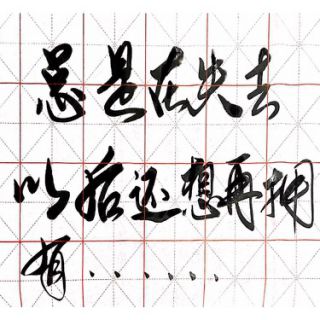 总是在失去
以后还想再拥
有......